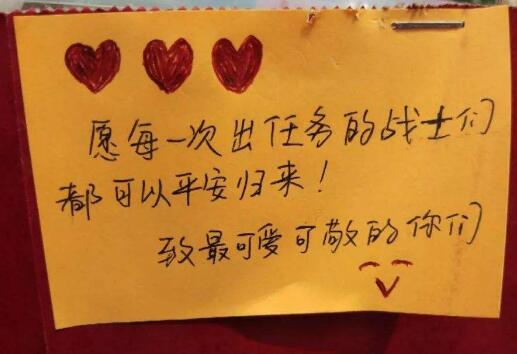 愿每一次出任务的战士们
都可以平安归来!
致最可爱可敬的你们